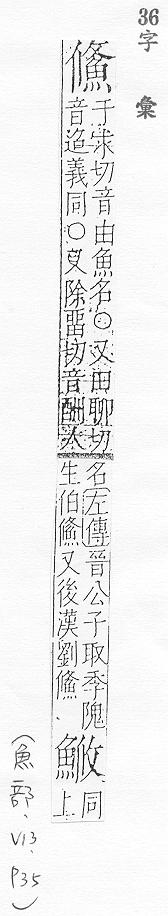 36
字彙
鯈
于求切音由魚名○又田聊切
音迢義同○又除畱切音酬人
名左傳晉公子取季隗
生伯鯈又後漢劉鯈.
同
上
(魚部, V13, P35)